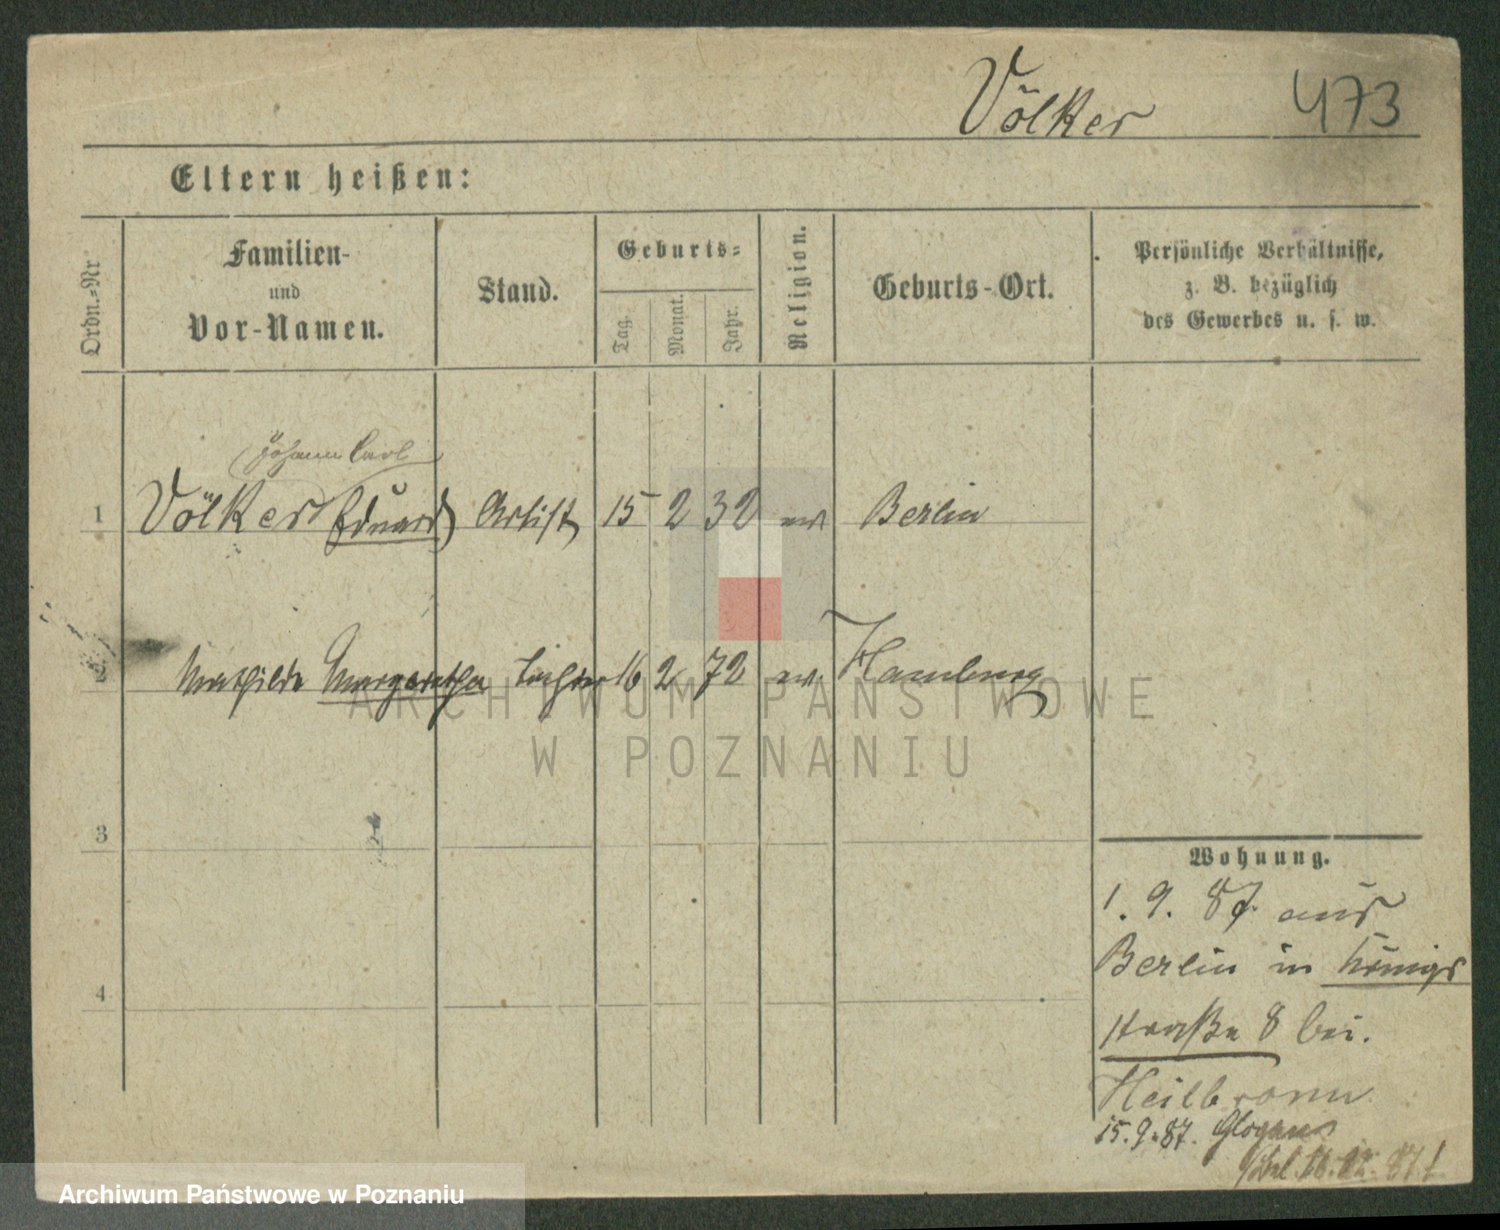 Völker 473
Eltern heißen:
Ordn.-Nr
Familien-
und
Vor-Namen.
Stand.
Geburts-
Tag.
Monat.
Jahr.
Religion.
Geburts-Ort.
Persönliche Verhältnisse,
z. B. bezüglich
des Gewerbes u. s. w.
Johann Carl
1 Völker Eduard Artist 15 2 32 ev Berlin
2 Mathilde Margaretha Tochter 16 2 72 ev. Hamburg
ARCHIWUM PAŃSTWOWE
W POZNANIU
3
4
Wohnung.
1. 9. 87. aus
Berlin in Königs
straße 8 bei.
Heilbronn
15. 9. 87. Glogau
Archiwum Państwowe w Poznaniu